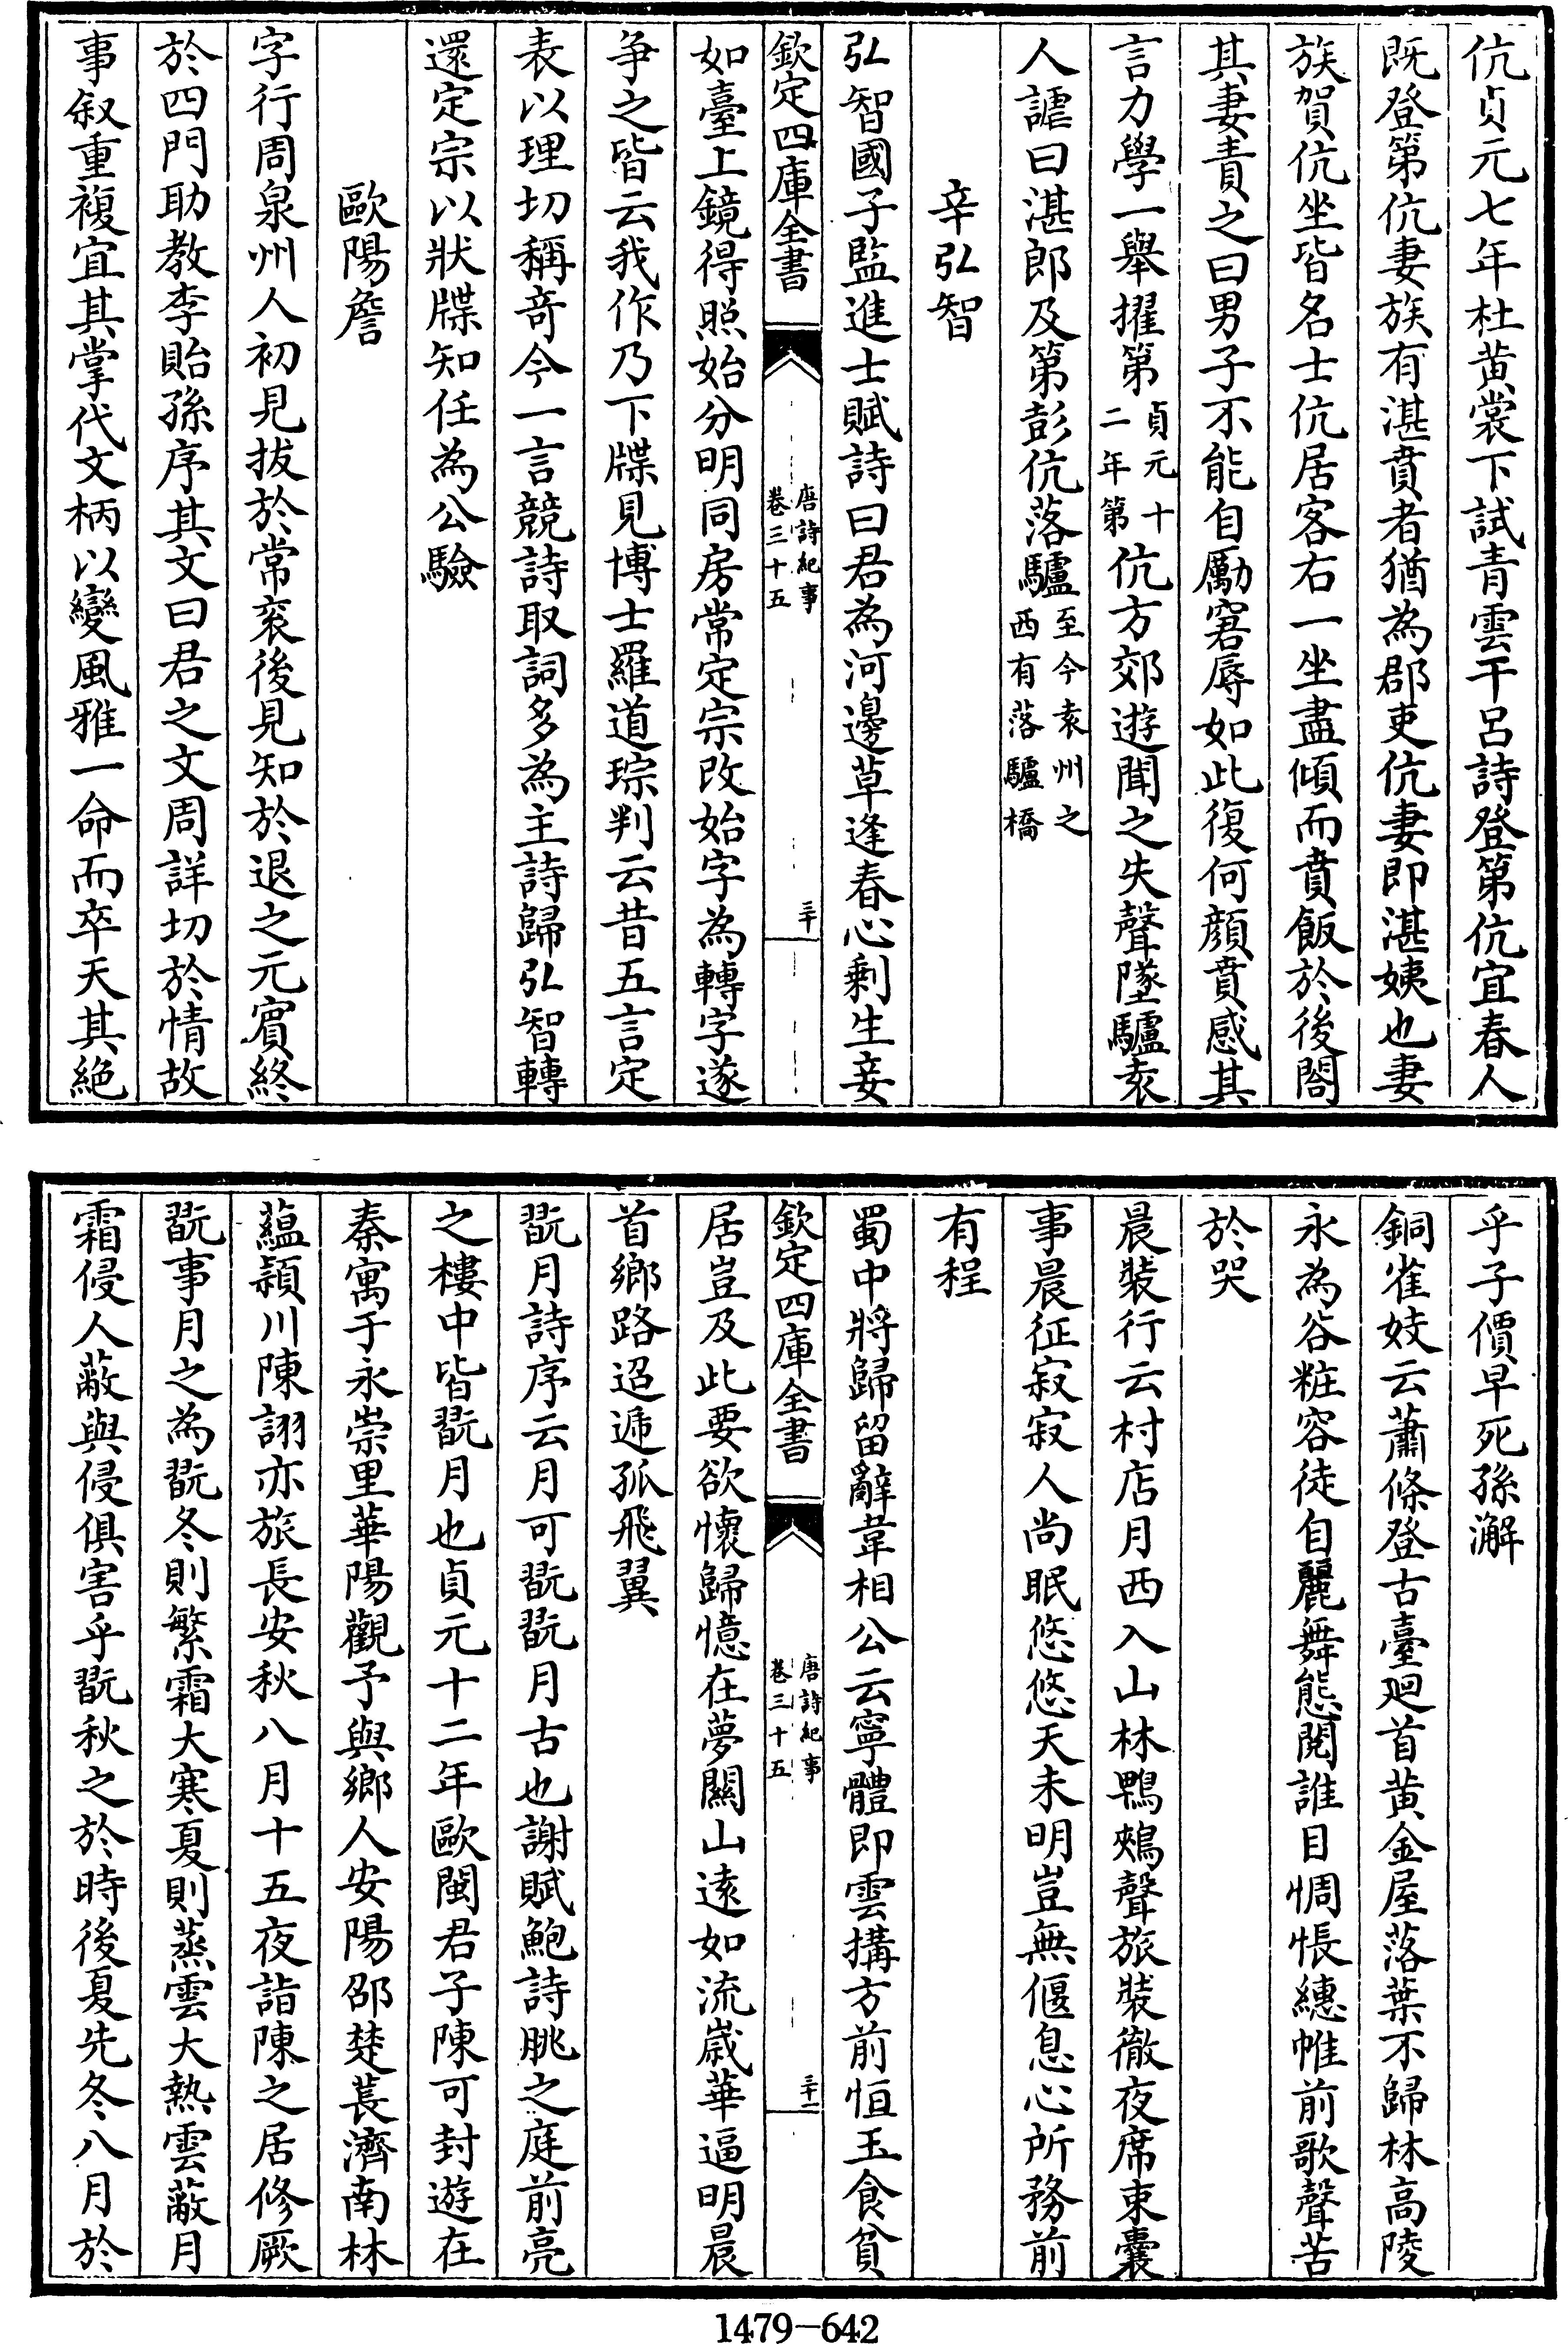 伉貞元七年杜黃裳下試青雲干呂詩登第伉宜春人
既登第伉妻族有湛賁者猶為郡吏伉妻即湛姨也妻
族賀伉坐皆名士伉居客右一坐盡傾而賁飯於後閤
其妻責之曰男子不能自勵窘辱如此復何顏賁感其
言力學一舉擢第貞元十二年第伉方郊遊聞之失聲墜驢袁
人謔曰湛郎及第彭伉落驢至今袁州之西有落驢橋
辛弘智
弘智國子監進士賦詩曰君為河邊草逢春心剩生妾
欽定四庫全書
唐詩紀事
卷三十五
三十
如臺上鏡得照始分明同房常定宗改始字為轉字遂
争之皆云我作乃下牒見博士羅道琮判云昔五言定
表以理切稱奇今一言競詩取詞多為主詩歸弘智轉
還定宗以狀牒知任為公驗
歐陽詹
字行周泉州人初見拔於常衮後見知於退之元賓終
於四門助教李貽孫序其文曰君之文周詳切於情故
事叙重複宜其掌代文柄以變風雅一命而卒天其絶
乎子價早死孫澥
銅雀妓云蕭條登古臺迴首黄金屋落葉不歸林高陵
永為谷粧容徒自麗舞態閱誰目惆悵繐帷前歌聲苦
於哭
晨裝行云村店月西入山林鵯鶋聲旅裝徹夜席束囊
事晨征寂寂人尚眠悠悠天未明豈無偃息心所務前
有程
蜀中將歸留辭韋相公云寧體即雲搆方前恒玉食貧
欽定四庫全書
唐詩紀事
卷三十五
三十一
居豈及此要欲懷歸憶在夢關山遠如流歲華逼明晨
首鄉路迢遞孤飛翼
翫月詩序云月可翫翫月古也謝賦鮑詩朓之庭前亮
之樓中皆翫月也貞元十二年歐閩君子陳可封遊在
秦寓于永崇里華陽觀予與鄉人安陽邵楚萇濟南林
蘊潁川陳詡亦旅長安秋八月十五夜詣陳之居修厥
翫事月之為翫冬則繁霜大寒夏則蒸雲大熱雲蔽月
霜侵人蔽與侵俱害乎翫秋之於時後夏先冬八月於
1479-642